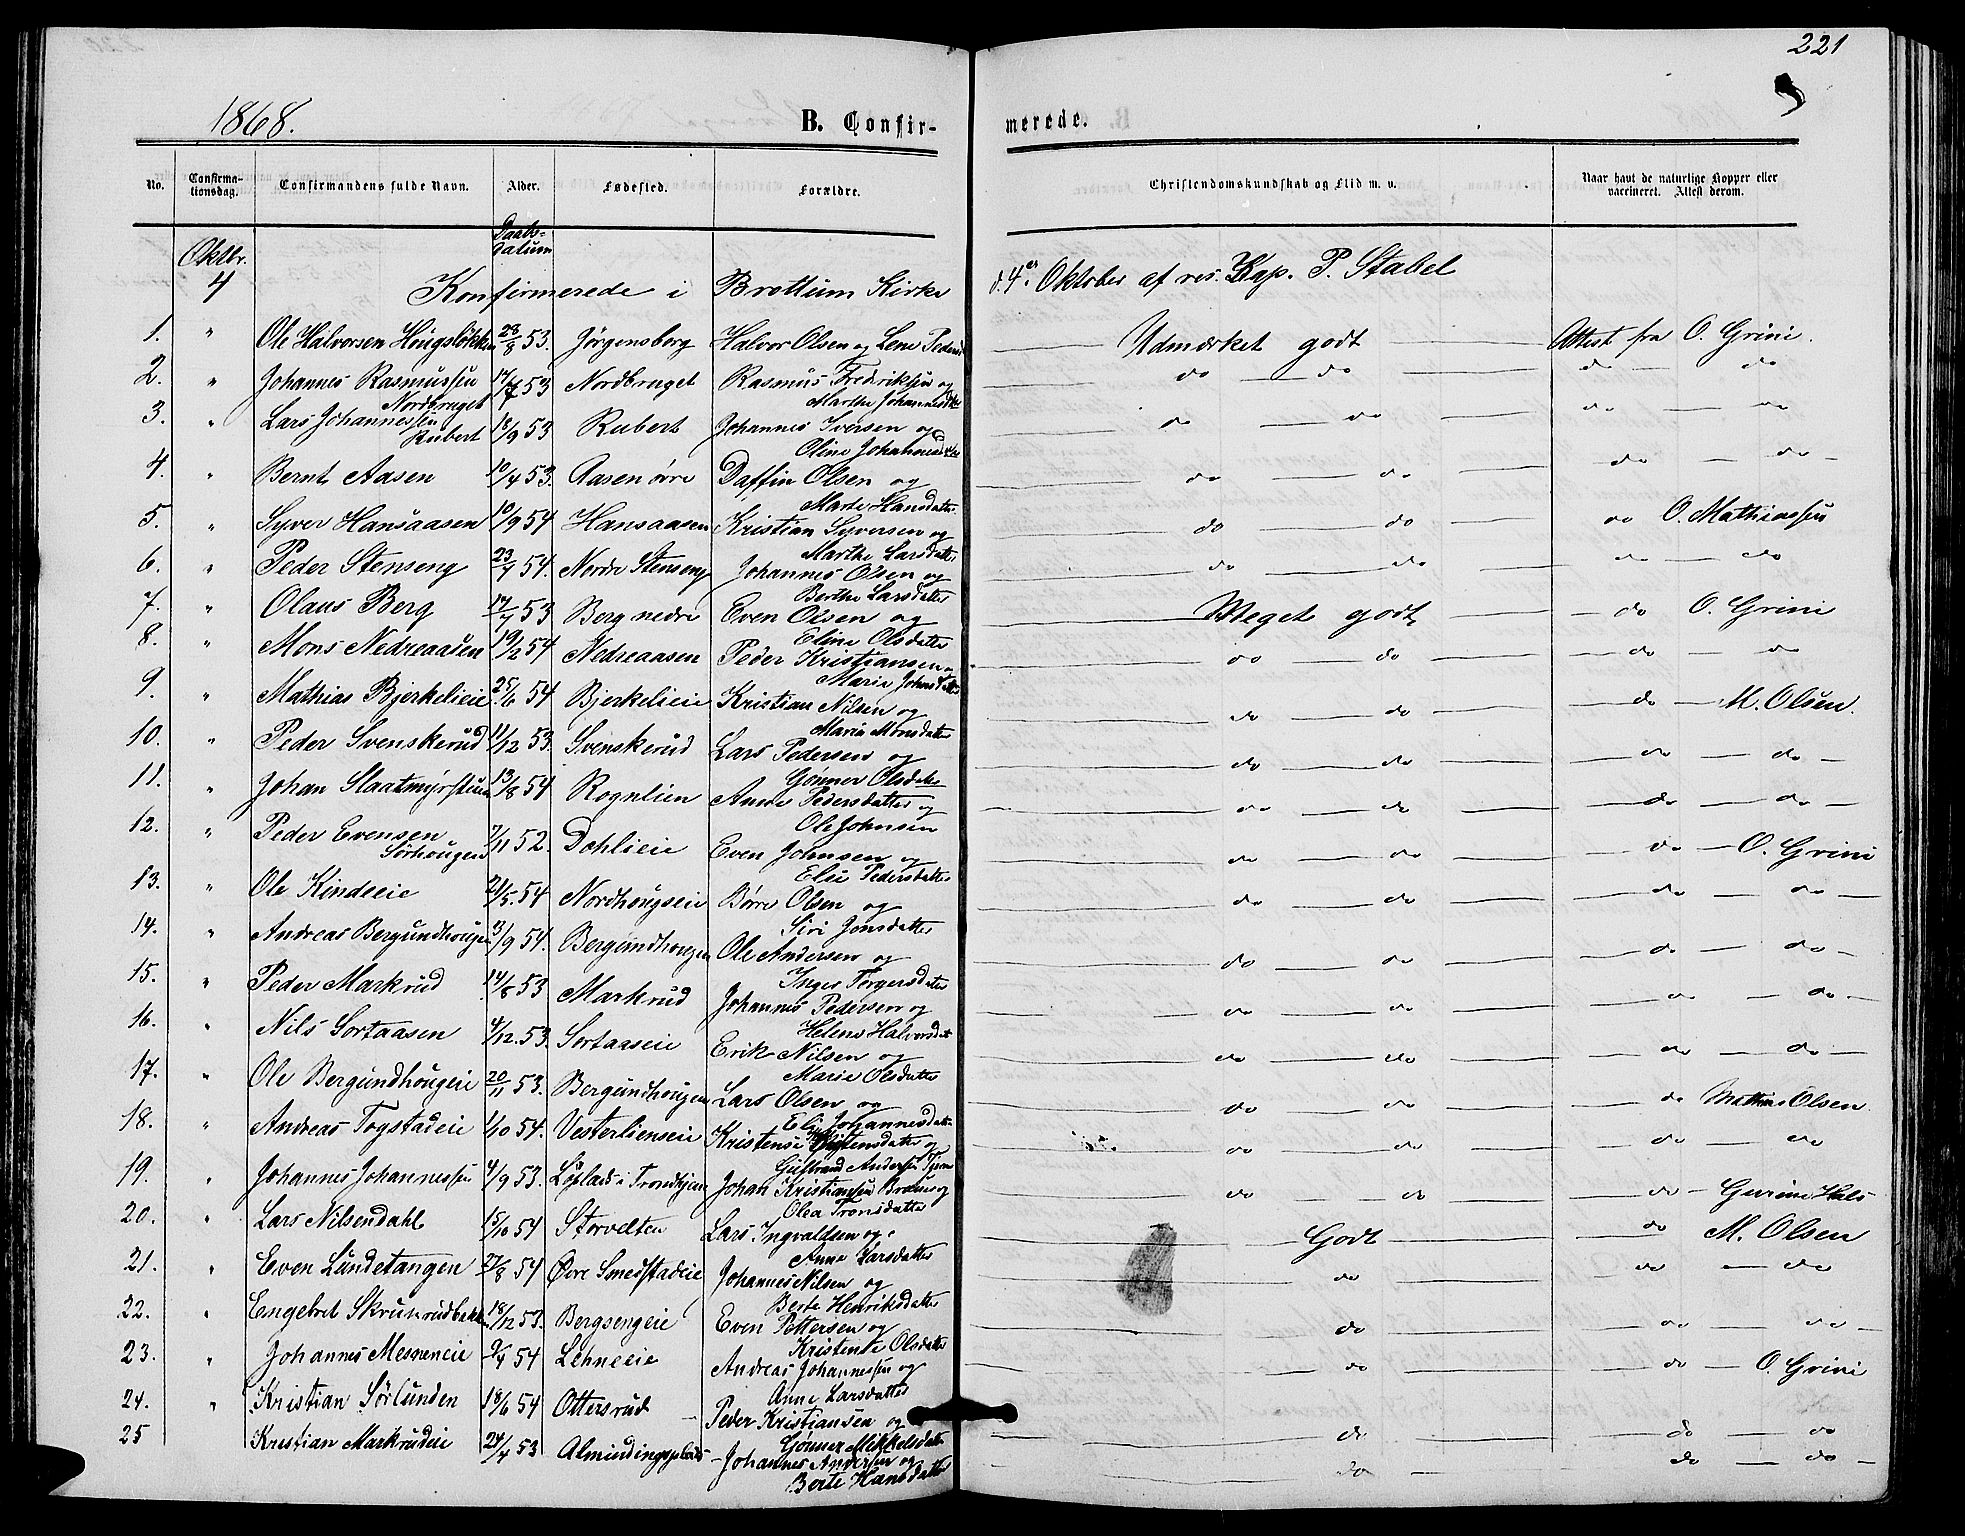 221
1868.
B. Confirmerede.
No. Confirmationsdag. Confirmandens fulde Navn. Alder. Fødested. Forældre. Christendomskundskab og Flid m. v. Naar havt de naturlige Kopper eller vaccineret. Attest derom.
Daabsdatum
Oktbr.
4 Konfirmerede i Brøttum Kirke d. 4de Oktober af res. Kap. P. Stabel
1. " Ole Halvorsen Hougsløkken 28/8 53. Jørgensborg Halvor Olsen og Lene Pedersd Udmærket godt Attest fra O. Grini.
2. " Johannes Rasmussen Nordbruget 17/7 53 Nordbruget Rasmus Fredriksen og Marthe Johannesdtr do do do do
3. " Lars Johannessen Rubert 18/9 53 Rubert Johannes Iversen og Oline Johannesdtr do do do do
4. " Bernt Aasen 10/4 53. Aasen øvre Daffin Olsen og Marte Hansdatter do do do do
5. " Syver Hansaasen 10/9 54 Hansaasen Kristian Syversen og Marthe Larsdatter do do do O. Mathiassen
6. " Peder Stenseng 54. Nordre Stenseng Johannes Olsen og Berthe Larsdatter do do do do
7. " Olaus Berg 17/7 53 Berg nedre Even Olsen og Eline Olsdatter Meget godt do O. Grini
8. " Mons Nedreaasen 19/2 54 Nedreaasen Peder Kristiansen Marie Johnsdatter do do do do
9. " Mathias Bjerkelieie 25/6 54 Bjerkelieie Kristian Nilsen og Maria Monsdatter do do do M. Olsen.
10. " Peder Svenskerud 11/12 53. Svenskerud Lars Pedersen og Gønner Olsdatter do do do do
11. " Johan Slaatmyrstuen 13/8 54 Rognlien Anne Pedersdatter og Ole Johnsen do do do do
12. " Peder Evensen Sørhougen 7/11 52. Dahlieie Even Johnsen og Elie Pedersdatter do do do O. Grini
13. " Ole Kindseie 21/5. 54 Nordhougseie Børre Olsen og Siri Jonsdatter do do do do
14. " Andreas Bergundhougen 3/9 54. Bergundhougen Ole Andersen og Inger Torgersdatter do do do do
15. " Peder Markrud 14/8 53 Markrud Johannes Pedersen og Helene Halvorsdat do do do do
16. " Nils Sortaasen 4/12. 53. Sortaaseie Erik Nilsen og Marie Olsdatter do do do do
17. " Ole Bergundhougeie 20/11 53. Bergundhougen Lars Olsen og Eli Johannesdatter do do do Mathias Olsen
18. " Andreas Togstadeie 1/10 54. Vesterlienseie Kristense og Gulbrand Andersen do do do do
19. " Johannes Johannessen 4/9 53. i Trondhjem Johan Kristiansen og Olea Tronsdatter do do do
20. " Lars Nilsendahl 15/10 54 Storvelten Lars Ingvaldsen og Anne Larsdatter Godt do M. Olsen
21. " Even Lundetangen 27/8 54 Øvre Smedstadeie Johannes Nilsen og Berte Henriksdatter do do do
22. " Engebret Skruherudbakk 18/12 53. Bergsengeie Even Pettersen og Kristense Olsdatter do do do
23. " Johannes Mesneneie 54 Lehneeie Andreas Johannessen og Anne Larsdatter do do O. Grini
24. " Kristian Sørlunden 18/6 54 Ottersrud Peder Kristiansen og Gønner Mikkelsdatter do do do
25 Kristian Markrudeie 24/4 53 Almindingsplads Johannes Andersen og Berte Hansdatter do do do